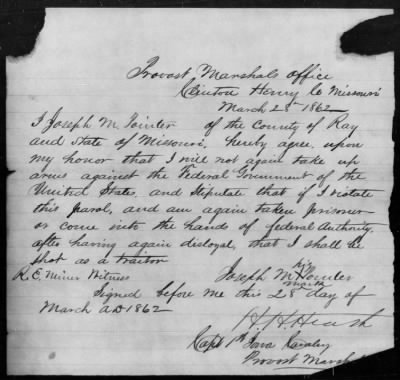 Provost Marshals Office
Clinton Henry Co Missouri
March 28th 1862
I Joseph M. Pointer of the County of Ray
and State of Missouri, hereby agree upon
my honor that I will not again take up
arms against the Federal Government of the
United States, and stipulate that if I violate
this parol, and am again taken prisoner
or come into the hands of federal authority,
after having again disloyal, that I shall be
shot as a traitor
his
R. E. Miner Witness Joseph M. Pointer
mark
Signed before me this 28 day of
March AD 1862
H H Heath
Capt 1st Iowa Cavalry
Provost Marshal